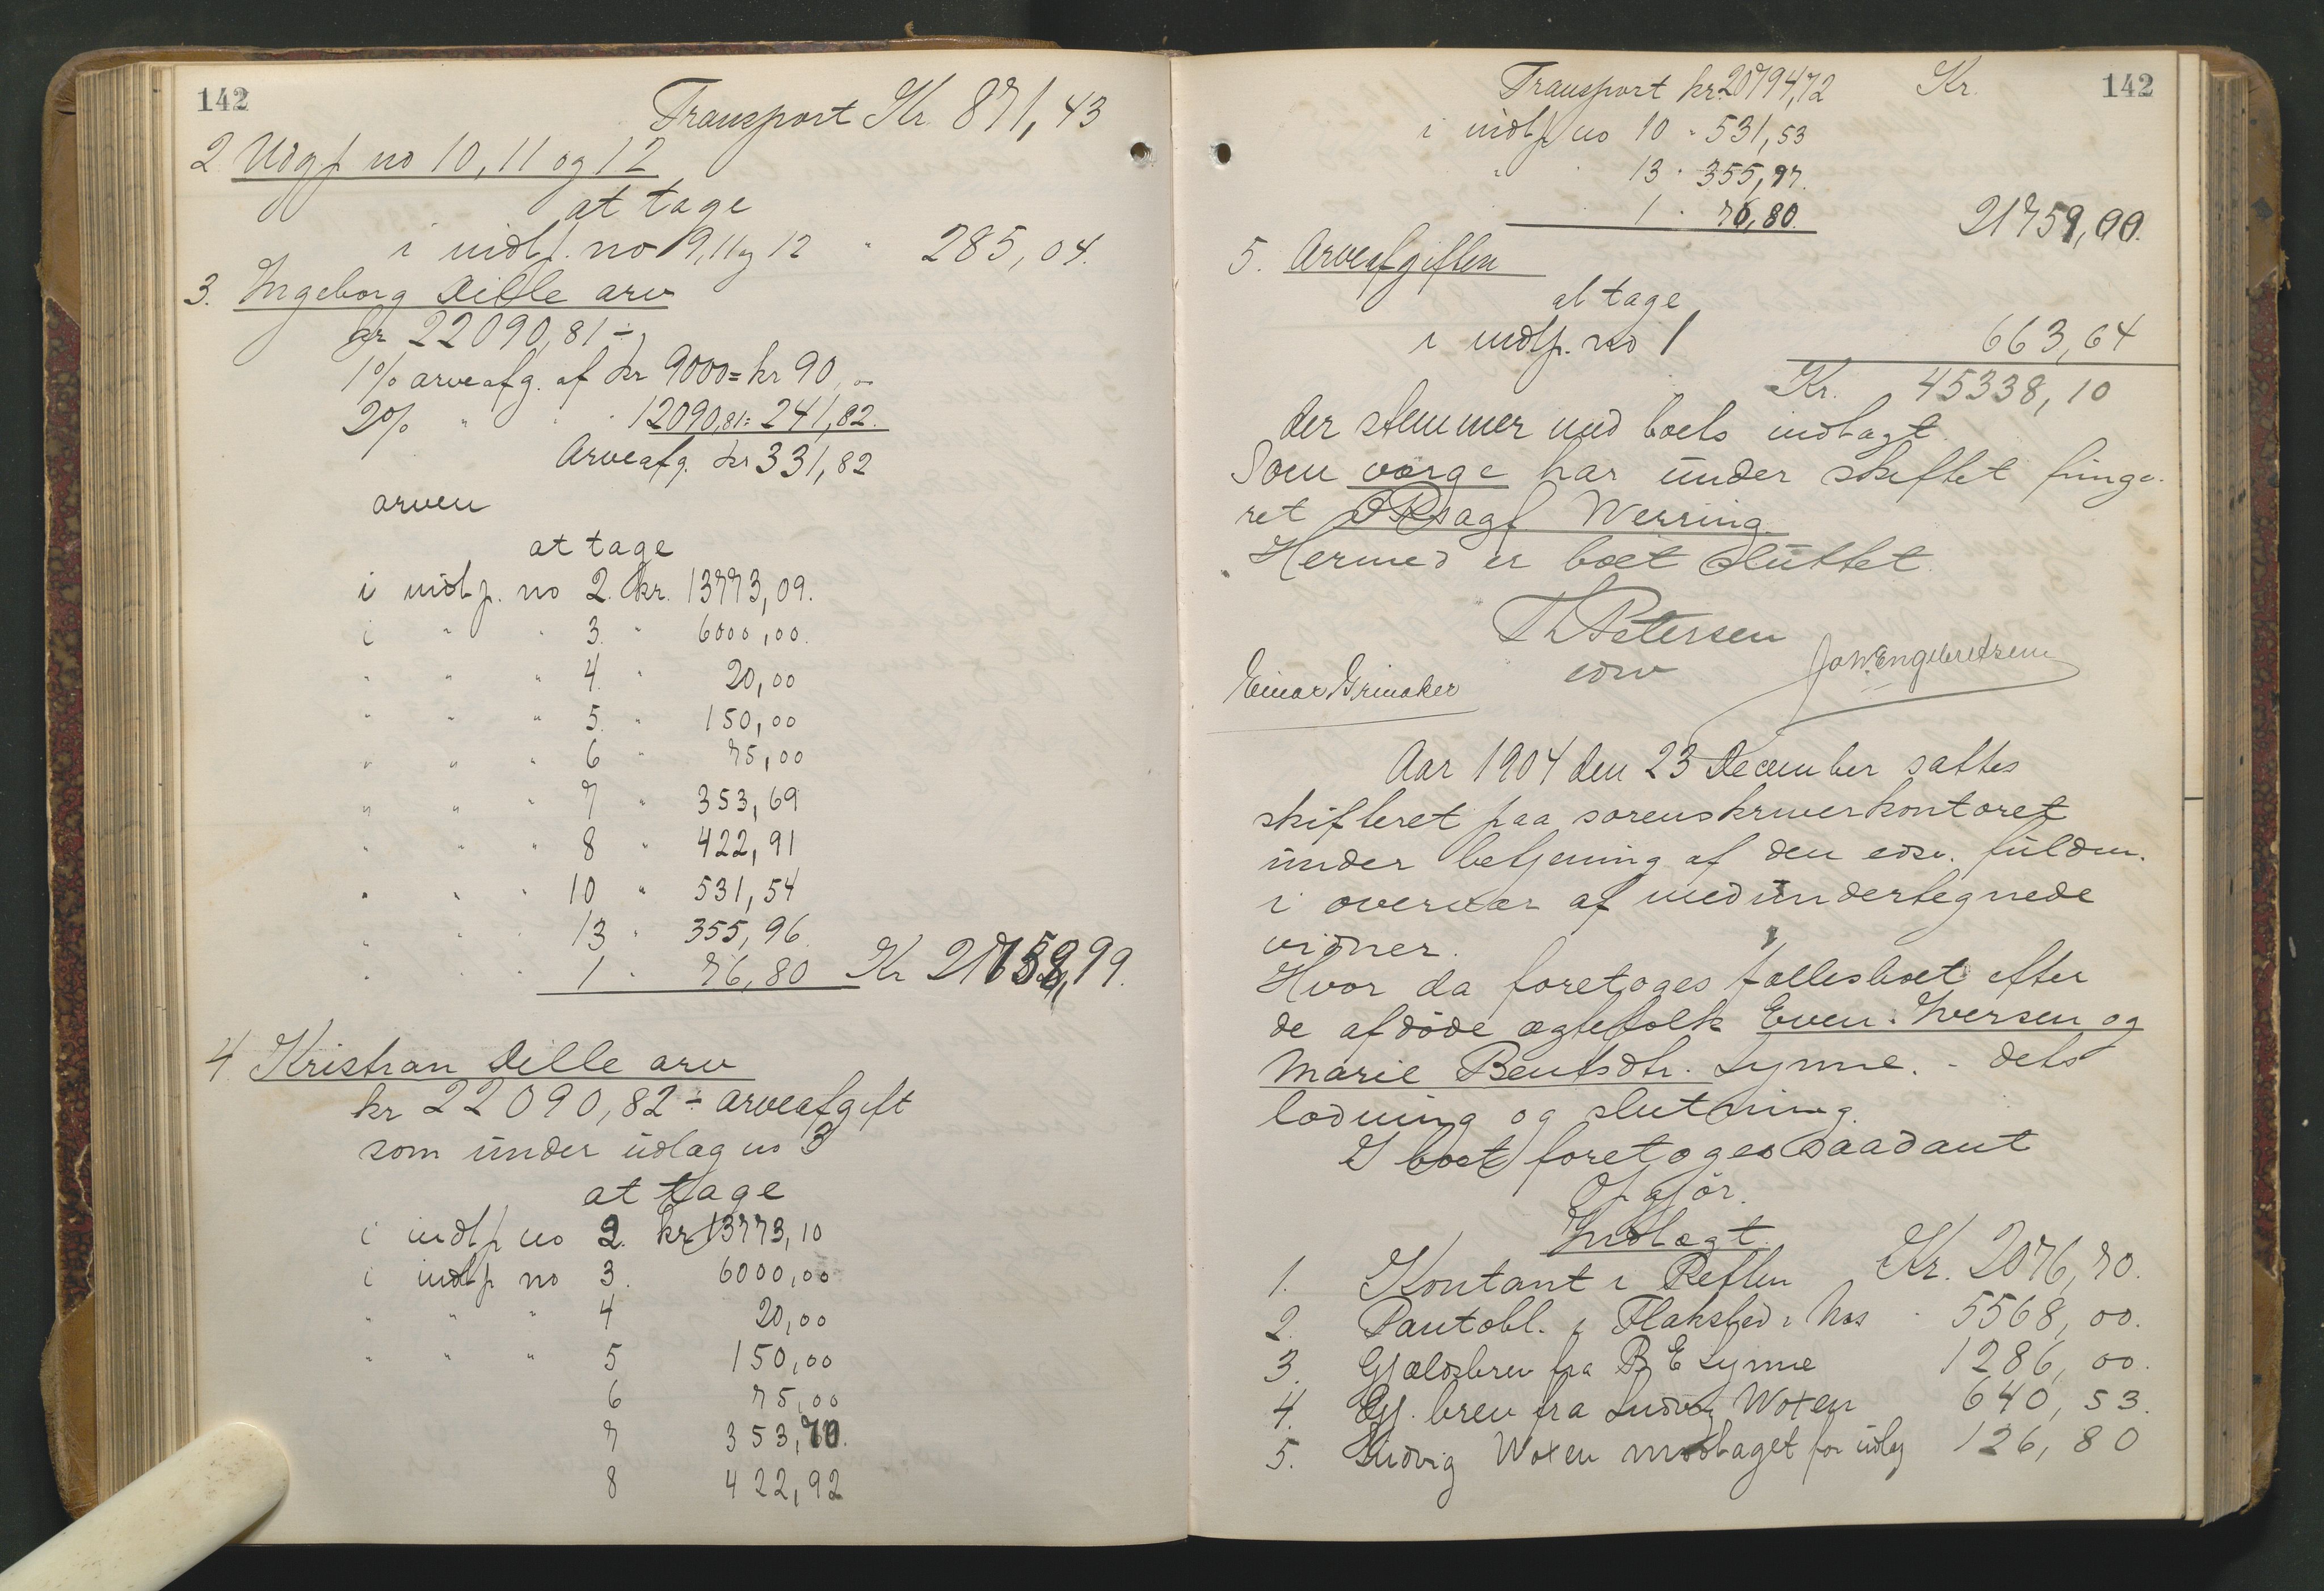 142
Transport Kr. 871,43
2 Udgp no 10, 11 og 12
at tage
i indtp. no 9, 11 og 12 " 285,04.
3. Ingeborg Dille arv
kr 22090,81 ÷
1% arveafg. af kr 9000 = kr 90,-
2% " " 12090,81 = 241,82.
Arveafg. kr 331,82
arven
at tage
i indtp. no 2. kr. 13773,09.
i " " 3. " 6000,00.
" " " 4. " 20,00
" " " 5. " 150,00
" " " 6 " 75,00
" " " 7 " 353,69
" " " 8 " 422,91
" " " 10 " 531,54
" " " 13 " 355,96.
" " " 1 " 76,80 Kr 21758,99.
4. Kristian Dille arv
kr 22090,82 ÷ arveafgift
som under udlæg no 3
at tage
i indtp no 2. kr 13773,10
i indtp no 3. 6000,00
" " " 4 20,00
" " " 5 150,00
6 75,00
7 353,70.
8 422,92
142
Transport kr. 20794,72 Kr.
i indtp no 10 " 531,53
" " 13 " 355,97.
1 " 76,80. 21759,00.
5. Arveafgiften
at tage
i indtp. no 1 663,64
Kr. 45338,10
der stemmer med boets indtægt.
Som værge har under skiftet funge-
ret ORsagf. Werring.
Hermed er boet sluttet.
Th Petersen
edsv
Einar Grinaker
Jo W. Engebretsen
Aar 1904 den 23 December sattes
skifteret paa sorenskriverkontoret
under betjening af den edsv. fuldm.
i overvær af medundertegnede
vidner.
Hvor da foretoges fællesboet efter
de afdøde ægtefolk Even Iversen og
Marie Bentsdtr. Lynne. - dets
lodning og slutning.
I boet foretoges saadant
Opgjør.
Indtægt.
1. Kontant i Retten Kr. 2076,70.
2. Pantobl. i Flakstad i Nes " 5568,00.
3. Gjældsbrev fra B E Lynne 1286,00.
4. Gj. brev fra Ludvig Woxen 640,53.
5. Ludvig Woxen modtaget for udlæg 126,80